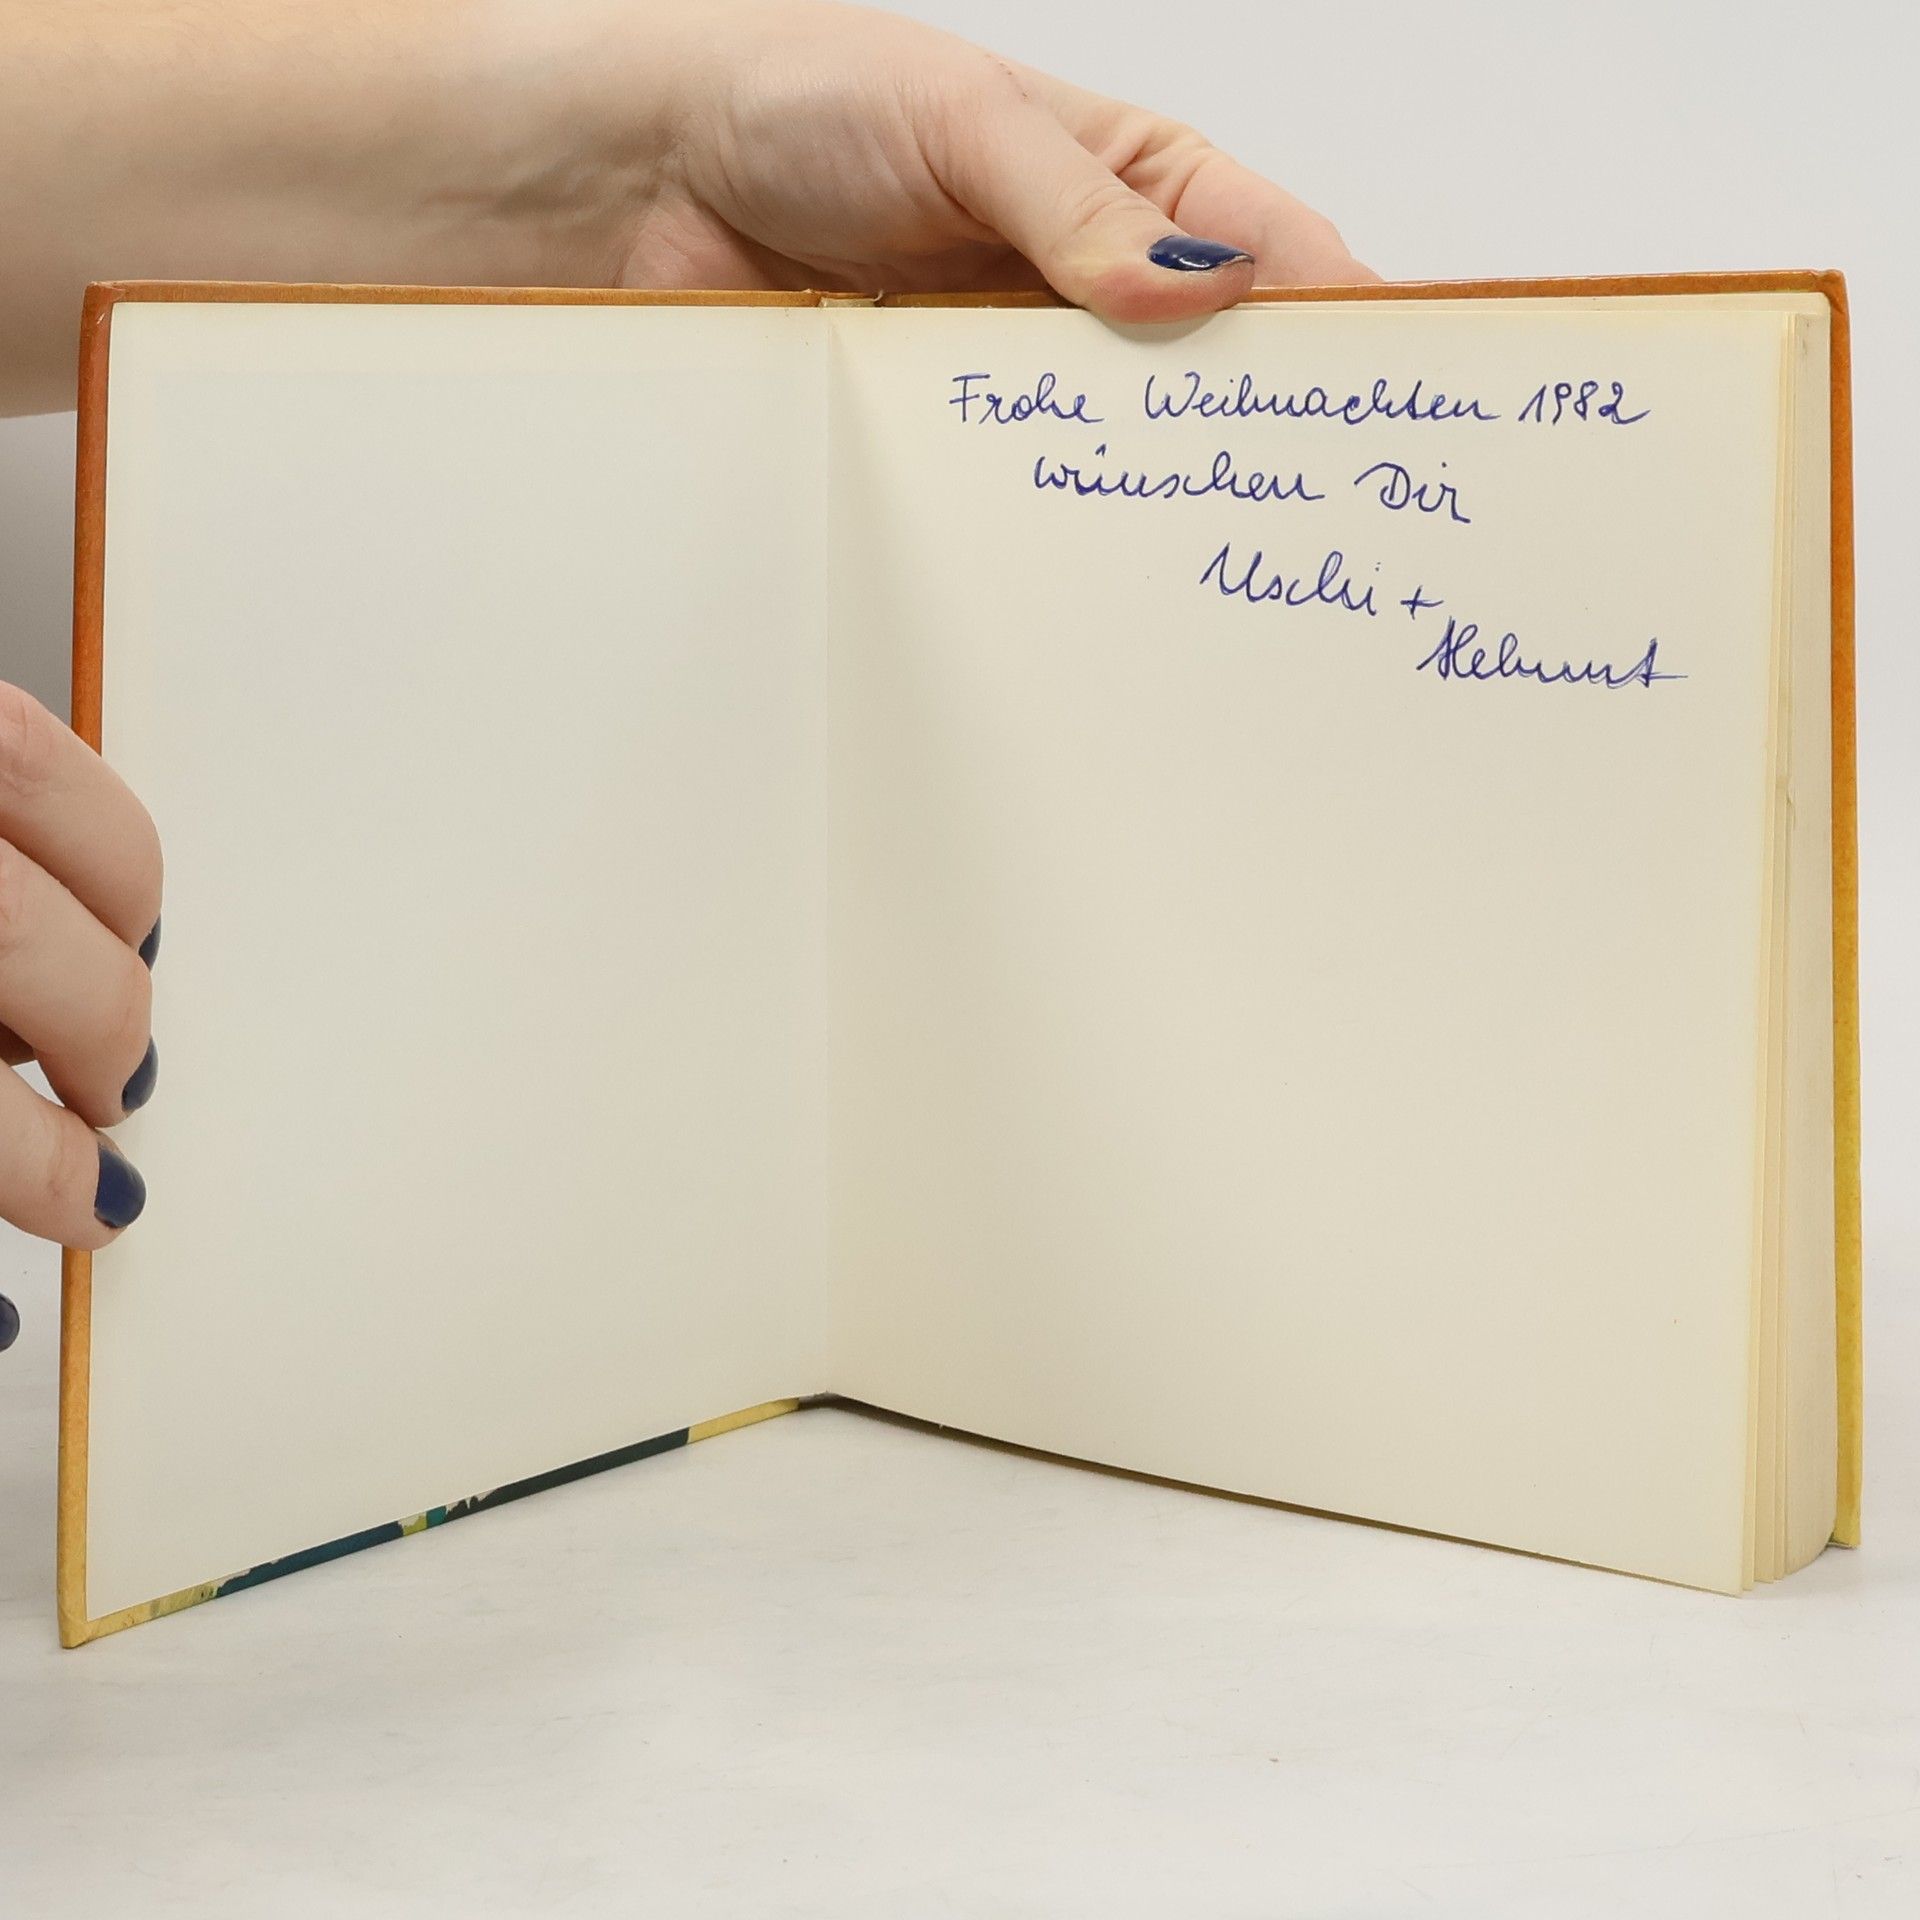 Frohe Weihnachten 1982
wünschen Dir
Uschi +
Helmut